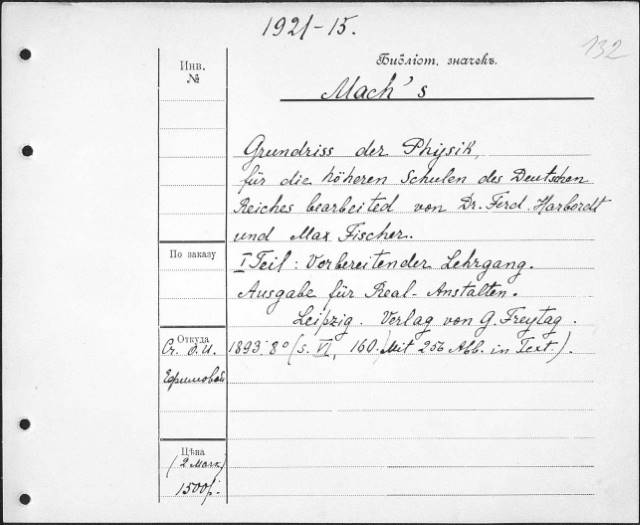 1921-15.
132
Инв.
№
Библіот. значекъ.
Mach's
Grundriss der Physik,
für die höheren Schulen des Deutschen
Reiches bearbeited von Dr. Ferd. Harbordt
und Max Fischer.
По заказу
I Teil: Vorbereitender Lehrgang.
Ausgabe für Real-Anstalten.
Leipzig. Verlag von G. Freytag.
Откуда
1893. 8° (S. VI, 160. Mit 256 Abb. in Text).
Ефимовой
Цѣна
(2 Марк.)
1500р.